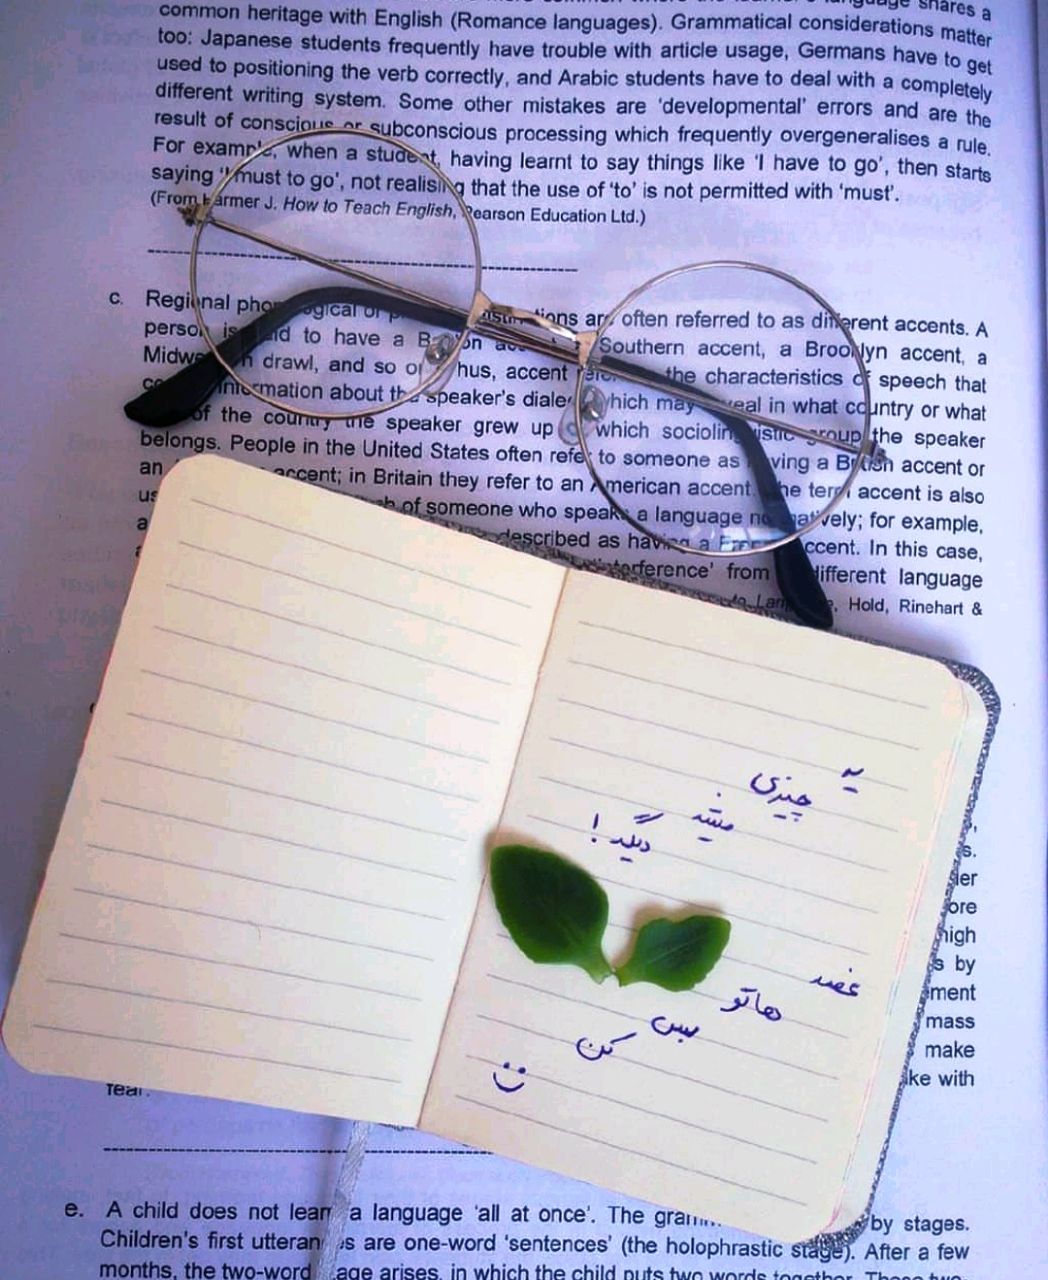 common heritage with English (Romance languages). Grammatical considerations matter
too: Japanese students frequently have trouble with article usage, Germans have to get
used to positioning the verb correctly, and Arabic students have to deal with a completely
different writing system. Some other mistakes are 'developmental' errors and are the
result of conscious or subconscious processing which frequently overgeneralises a rule.
For example, when a student, having learnt to say things like 'I have to go', then starts
saying 'I must to go', not realising that the use of 'to' is not permitted with 'must'.
(From Harmer J. How to Teach English, Pearson Education Ltd.)
c. Regional are often referred to as different accents. A
person is said to have a Southern accent, a Brooklyn accent, a
drawl, and so on. Thus, accent the characteristics of speech that
information about the speaker's dialect, which may reveal in what country or what
of the country the speaker grew up or which sociolinguistic group the speaker
belongs. People in the United States often refer to someone as having a British accent or
an accent; in Britain they refer to an American accent. The term accent is also
of someone who speaks a language for example,
described as having a accent. In this case,
interference' from different language
Hold, Rinehart &
یه
چیزی
میشه
دیگه!
غصه
هاتو
بس
کن
high
by
mass
make
with
fear.
e. A child does not learn a language 'all at once'. The by stages.
Children's first utterances are one-word 'sentences' (the holophrastic stage). After a few
months, the two-word stage arises, in which the child puts two words together.